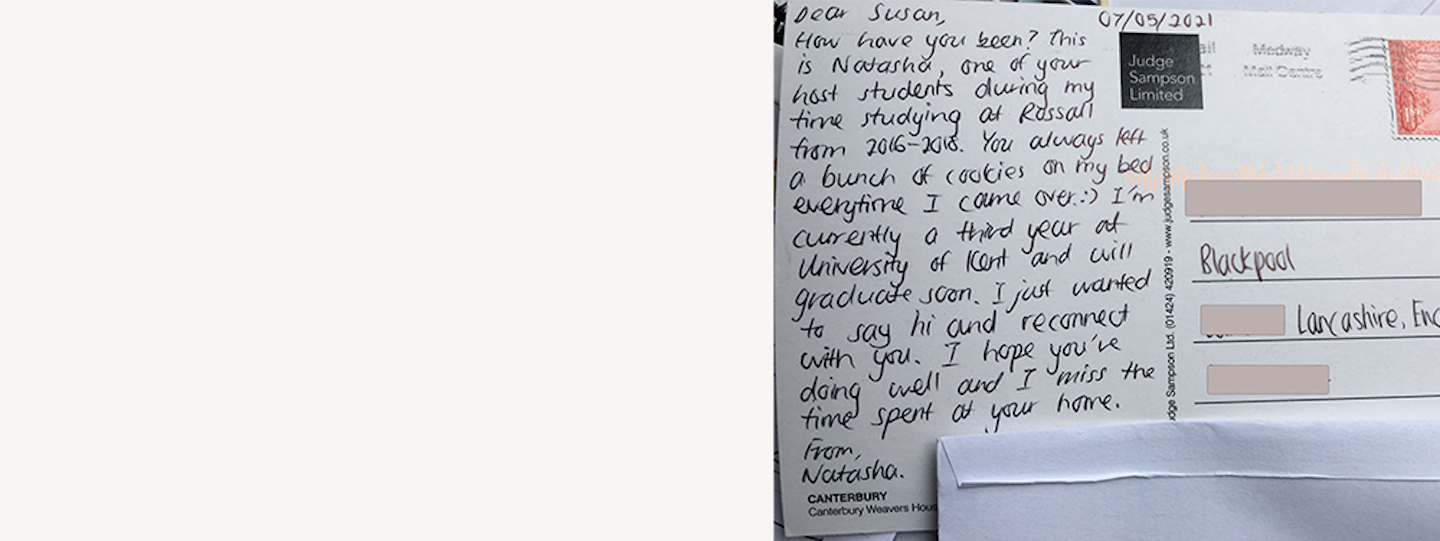 Dear Susan,
How have you been? This
is Natasha, one of your
host students during my
time studying at Rossall
from 2016-2018. You always left
a bunch of cookies on my bed
everytime I came over.:) I'm
currently a third year at
University of Kent and will
graduate soon. I just wanted
to say hi and reconnect
with you. I hope you've
doing well and I miss the
time spent at your home.
From,
Natasha.
CANTERBURY
Canterbury Weavers
07/05/2021
Judge
Sampson
Limited
Medway
Mail Centre
Sampson Ltd. (01424) 420919 - www.judgesampson.co.uk
Blackpool
Lancashire,